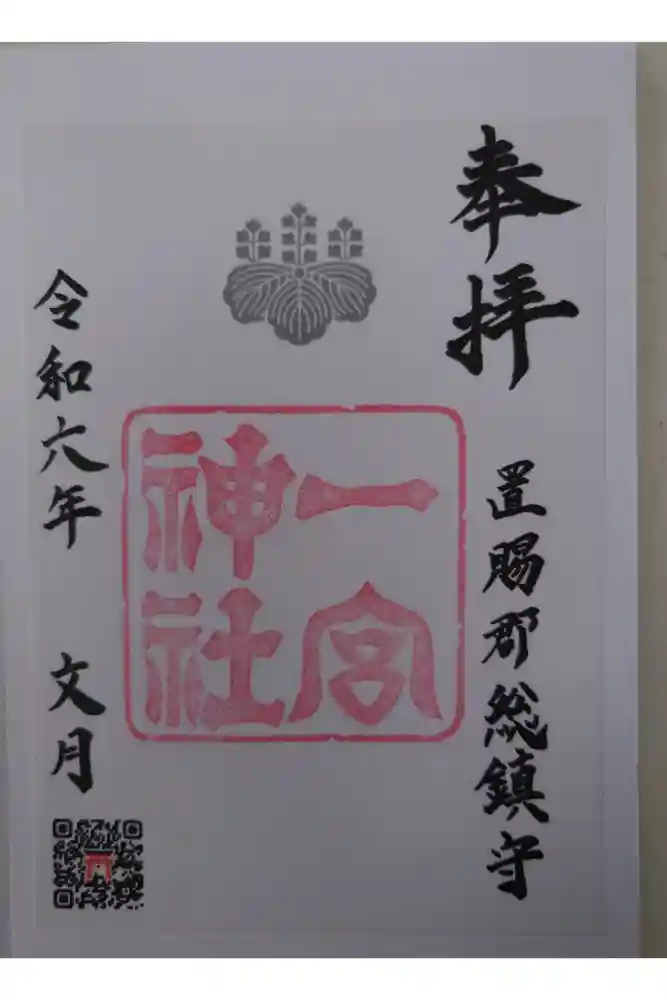 奉拝
置賜郡総鎮守
一宮
神社
令和六年
文月